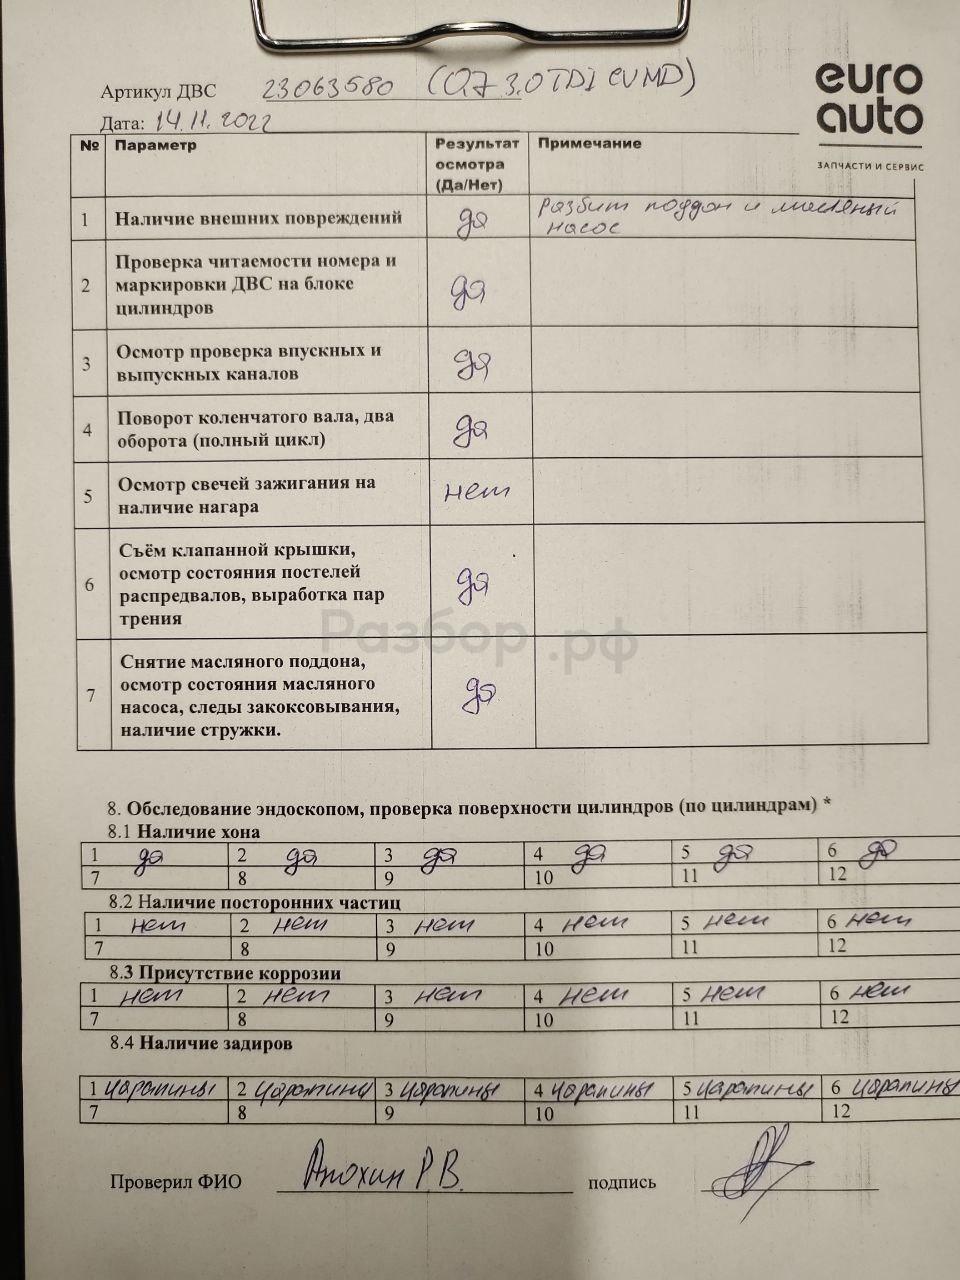 Артикул ДВС 23063580 (Q7 3.0 TDI CVMD)
euro
auto
Дата: 14.11.2022
ЗАПЧАСТИ И СЕРВИС
№ Параметр Результат осмотра (Да/Нет) Примечание
1 Наличие внешних повреждений да разбит поддон и масляный
насос
2 Проверка читаемости номера и
маркировки ДВС на блоке да
цилиндров
3 Осмотр проверка впускных и да
выпускных каналов
4 Поворот коленчатого вала, два да
оборота (полный цикл)
5 Осмотр свечей зажигания на нет
наличие нагара
6 Съём клапанной крышки,
осмотр состояния постелей да
распредвалов, выработка пар
трения
Разбор.рф
7 Снятие масляного поддона,
осмотр состояния масляного да
насоса, следы закоксовывания,
наличие стружки.
8. Обследование эндоскопом, проверка поверхности цилиндров (по цилиндрам) *
8.1 Наличие хона
1 да 2 да 3 да 4 да 5 да 6 да
7 8 9 10 11 12
8.2 Наличие посторонних частиц
1 нет 2 нет 3 нет 4 нет 5 нет 6 нет
7 8 9 10 11 12
8.3 Присутствие коррозии
1 нет 2 нет 3 нет 4 нет 5 нет 6 нет
7 8 9 10 11 12
8.4 Наличие задиров
1 царапины 2 царапины 3 царапины 4 царапины 5 царапины 6 царапины
7 8 9 10 11 12
Проверил ФИО Анохин Р.В. подпись